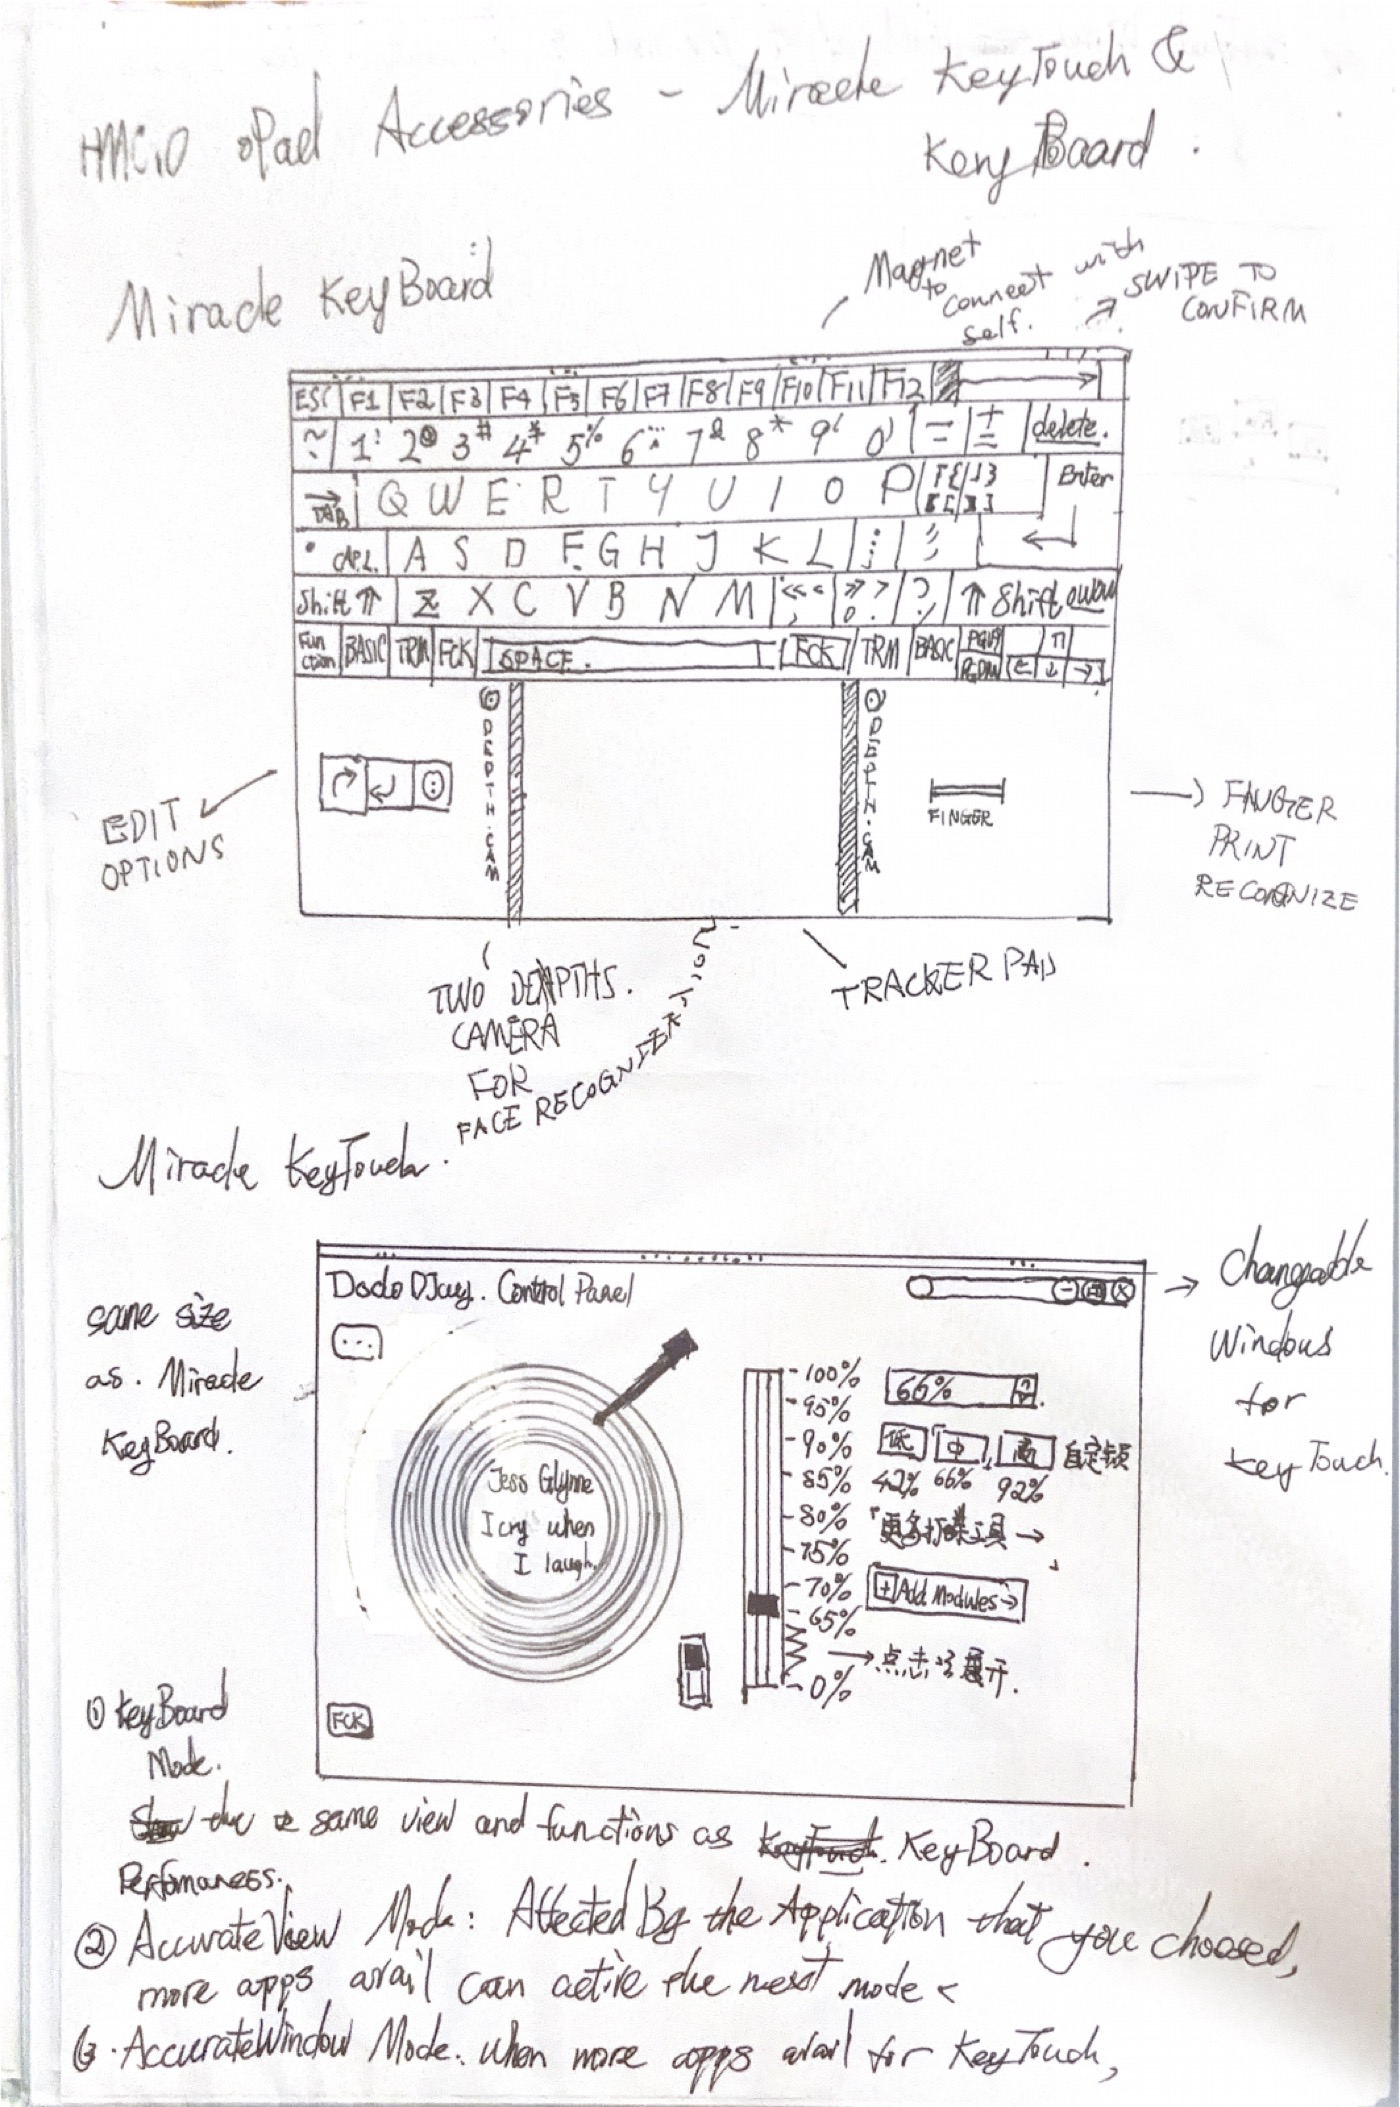 HMCiO oPad Accessories - Miracle KeyTouch &
KeyBoard.
Miracle KeyBoard
Magnet
to
connect with
self.
SWIPE TO
CONFIRM
ESC F1 F2 F3 F4 F5 F6 F7 F8 F9 F10 F11 F12
~ 1 2@ 3# 4 5% 6 7& 8* 9( 0) - + = delete.
TAB Q W E R T Y U I O P { [ } ] Enter
A S D F G H J K L ;
Shift ⇈ Z X C V B N M < , > . ? / ⇈ Shift
Function BASIC TRM FCK SPACE. FCK TRM BASIC PGUP ↑
PGDN ← ↓ →
DEPTH·CAM
DEPTH·CAM
FINGER
EDIT
OPTIONS
FINGER
PRINT
RECOGNIZE
TWO DEPTHS.
CAMERA
FOR
FACE RECOGNIZATION
TRACKER PAD
Miracle KeyTouch.
Dodo DJay. Control Panel
Changeable
Windows
for
KeyTouch.
same size
as. Miracle
KeyBoard.
...
Jess Glynne
I cry when
I laugh.
100%
95%
90%
85%
80%
75%
70%
65%
0%
66%
低 中 高
42% 66% 92%
更多打碟工具 →
+ Add Modules →
→ 点击以展开.
FCK
① KeyBoard
Mode.
the same view and functions as KeyBoard.
② AccurateView Mode: Affected By the Application that you choosed,
more apps avail can active the next mode <
③. AccurateWindow Mode. when more apps avail for KeyTouch,